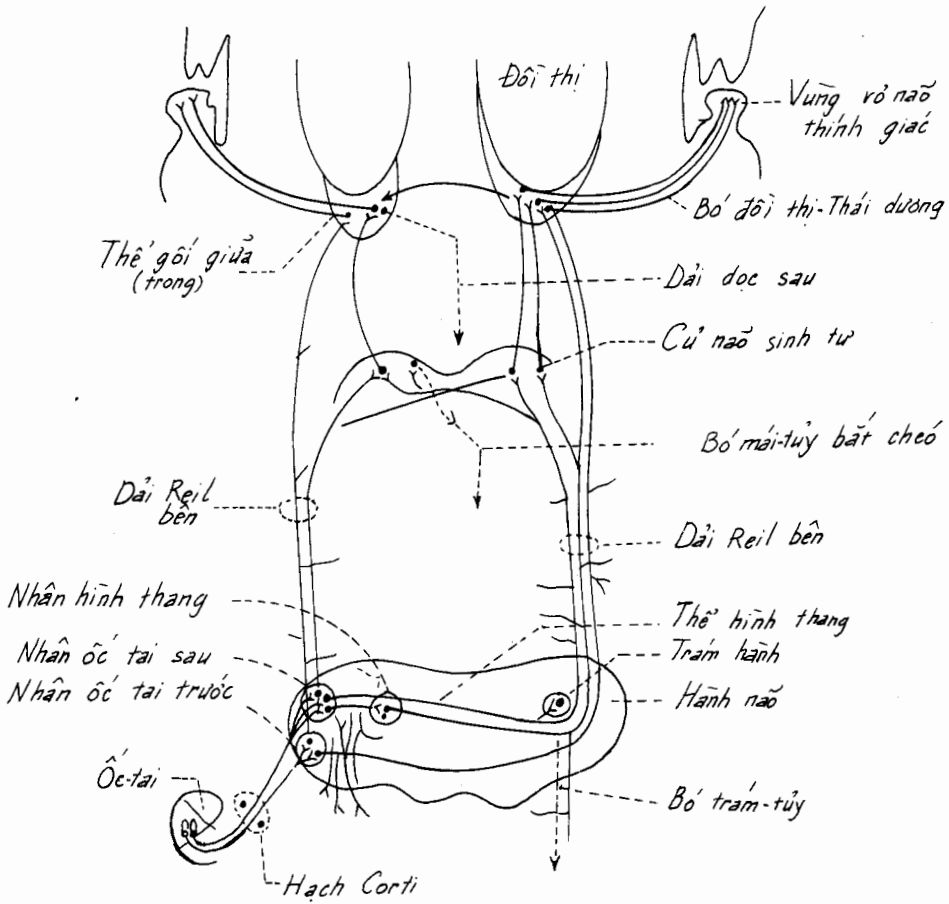 Đồi thị
Vùng vỏ não
thính giác
Bó đồi thị-Thái dương
Thể gối giữa
(trong)
Dải dọc sau
Củ não sinh tư
Bó mái-tủy bắt chéo
Dải Reil
bên
Dải Reil bên
Nhân hình thang
Thể hình thang
Nhân ốc tai sau
Trám hành
Nhân ốc tai trước
Hành não
Ốc-tai
Bó trám-tủy
Hạch Corti